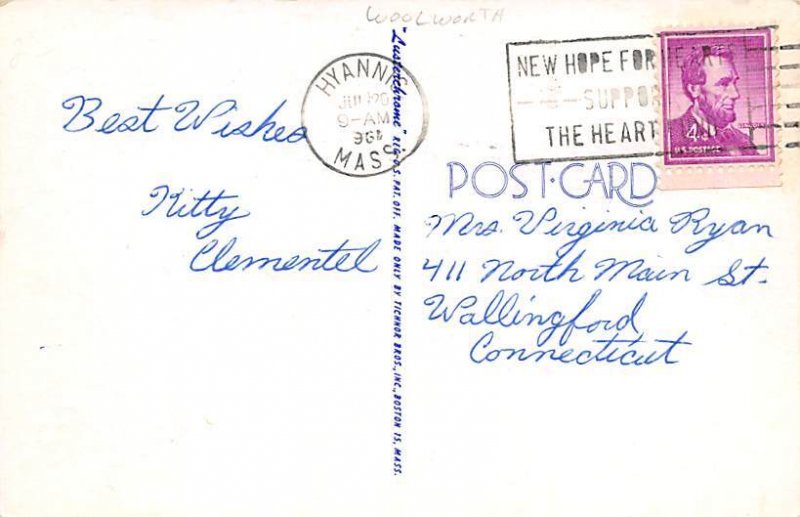 WOOLWORTH
HYANNIS
9-AM
MASS
NEW HOPE FOR HEARTS
SUPPORT
THE HEART
4¢
U.S. POSTAGE
Best Wishes
Kitty
Clementel
"Lusterchrome" REG. U.S. PAT. OFF. MADE ONLY BY TICHNOR BROS., INC., BOSTON 15, MASS.
POST·CARD
Mrs. Virginia Ryan
411 North Main St.
Wallingford
Connecticut